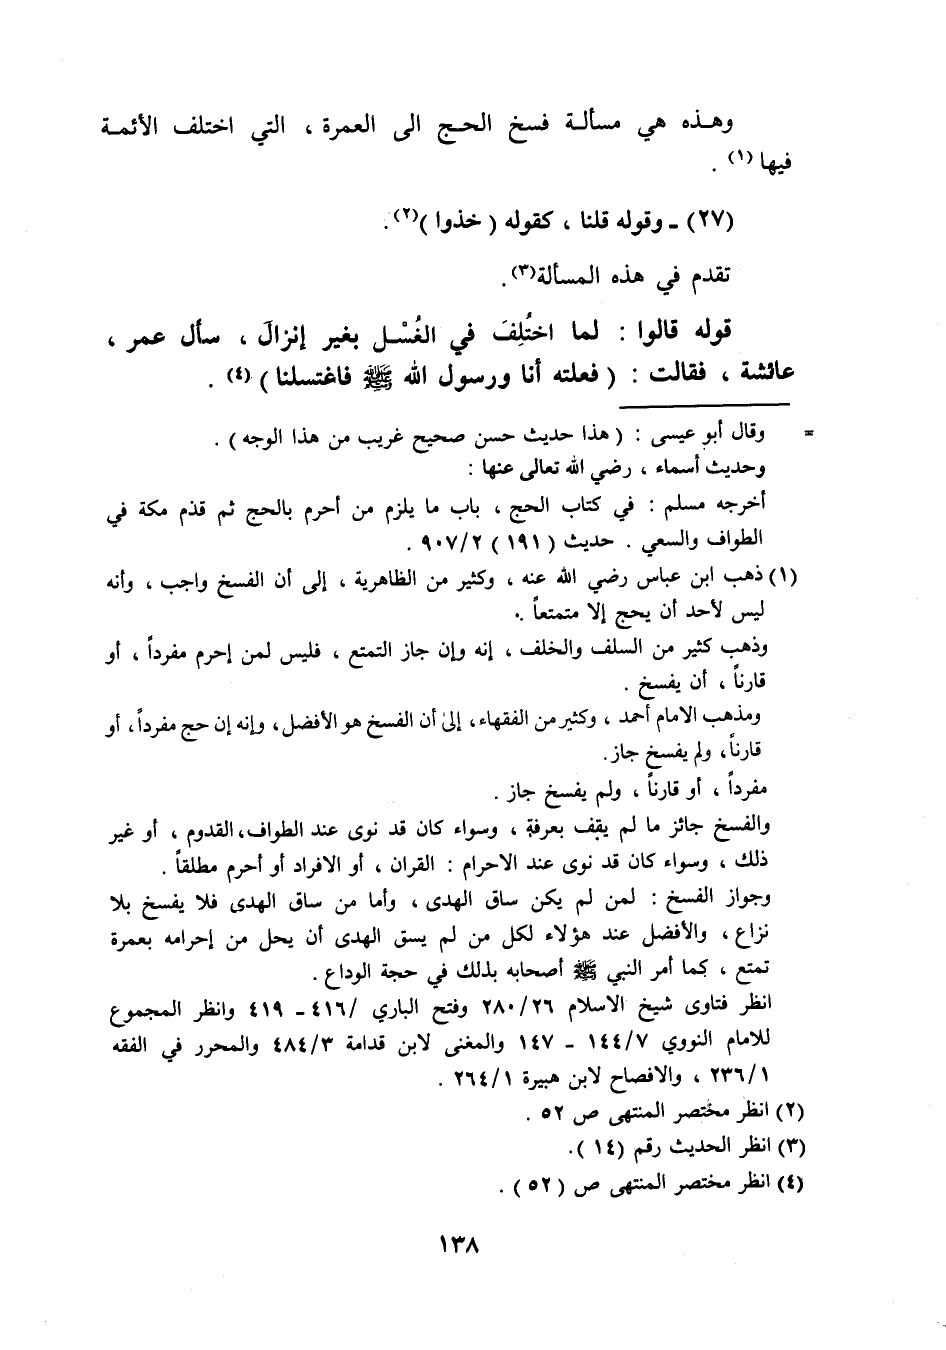 وهـذه هي مسألـة فسخ الحـج الى العمرة ، التي اختلف الأئمـة
فيها (١) .
(٢٧) ـ وقوله قلنا ، كقوله ( خذوا )(٢).
تقدم في هذه المسألة(٣).
قوله قالوا : لما اختُلِفَ في الغُسْـل بغير إنزالَ ، سأل عمر ،
عائشة ، فقالت : ( فعلته أنا ورسول الله ﷺ فاغتسلنا ) (٤) .
= وقال أبو عيسى : ( هذا حديث حسن صحيح غريب من هذا الوجه ) .
وحديث أسماء ، رضي الله تعالى عنها :
أخرجه مسلم : في كتاب الحج ، باب ما يلزم من أحرم بالحج ثم قدم مكة في
الطواف والسعي . حديث ( ١٩١ ) ٩٠٧/٢ .
(١) ذهب ابن عباس رضي الله عنه ، وكثير من الظاهرية ، إلى أن الفسخ واجب ، وأنه
ليس لأحد أن يحج إلا متمتعاً .
وذهب كثير من السلف والخلف ، إنه وإن جاز التمتع ، فليس لمن إحرم مفرداً ، أو
قارناً ، أن يفسخ .
ومذهب الامام أحمد ، وكثير من الفقهاء، إلى أن الفسخ هو الأفضل، وإنه إن حج مفرداً، أو
قارناً، ولم يفسخ جاز.
مفرداً ، أو قارناً ، ولم يفسخ جاز .
والفسخ جائز ما لم يقف بعرفة ، وسواء كان قد نوى عند الطواف، القدوم ، أو غير
ذلك ، وسواء كان قد نوى عند الاحرام : القران ، أو الافراد أو أحرم مطلقاً .
وجواز الفسخ : لمن لم يكن ساق الهدى ، وأما من ساق الهدى فلا يفسخ بلا
نزاع ، والأفضل عند هؤلاء لكل من لم يسق الهدى أن يحل من إحرامه بعمرة
تمتع ، كما أمر النبي ﷺ أصحابه بذلك في حجة الوداع .
انظر فتاوى شيخ الاسلام ٢٨٠/٢٦ وفتح الباري /٤١٦ـ ٤١٩ وانظر المجموع
للامام النووي ١٤٤/٧ - ١٤٧ والمغنى لابن قدامة ٤٨٤/٣ والمحرر في الفقه
٢٣٦/١ ، والافصاح لابن هبيرة ٢٦٤/١ .
(٢) انظر مختصر المنتهى ص ٥٢ .
(٣) انظر الحديث رقم (١٤ ).
(٤) انظر مختصر المنتهى ص ( ٥٢ ) .
١٣٨